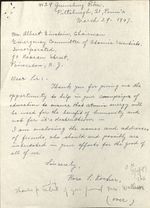 Pittsburgh, 21, Penn'a
March 29, 1947.
Mr. Albert Einstein, Chairman
Emergency Committee of Atomic Scientists,
Incorporated,
Princeton, N. J.
Dear Sir:-
Thank you for giving me the
opportunity to help in your campaign of
education to ensure that atomic energy will
be used for the benefit of humanity and
not for its destruction.
I am enclosing the names and addresses
of friends, who should and possibly are
interested in your efforts for the good
of all.
Sincerely,
(over)